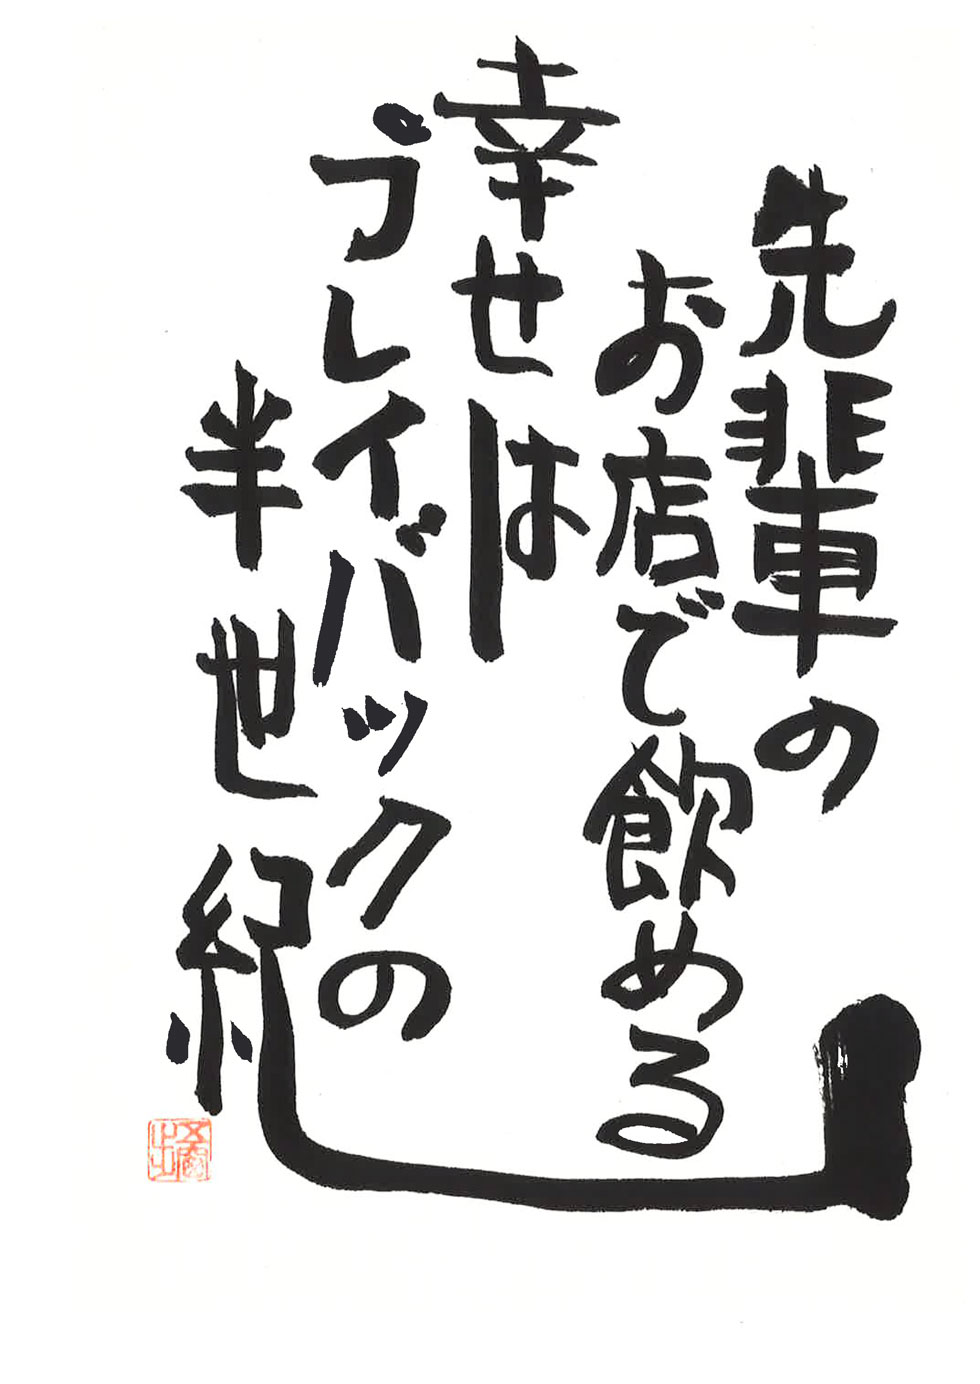 先輩の
お店で飲める
幸せは
プレイバックの
半世紀